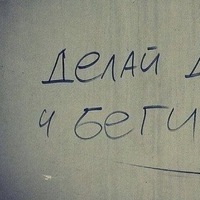 ДЕЛАЙ
И БЕГИ